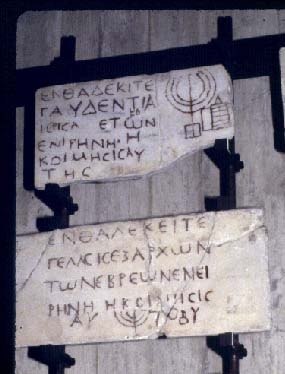 ΕΝΘΑΔΕΚΙΤΕ
ΓΑΥΔΕΝΤΙΑ
ΕΤΩΝ
ΕΝΙΡΗΝΗ Η
ΚΟΙΜΗCΙCΑΥ
ΤΗC
ΕΝΘΑΔΕΚΕΙΤΕ
ΓΕΛΑCΙCΕΞΑΡΧΩΝ
ΤΩΝΕΒΡΕΩΝΕΝΕΙ
ΡΗΝΗ ΗΚΟΙΜΙCΙC
ΑΥΤΟΥ